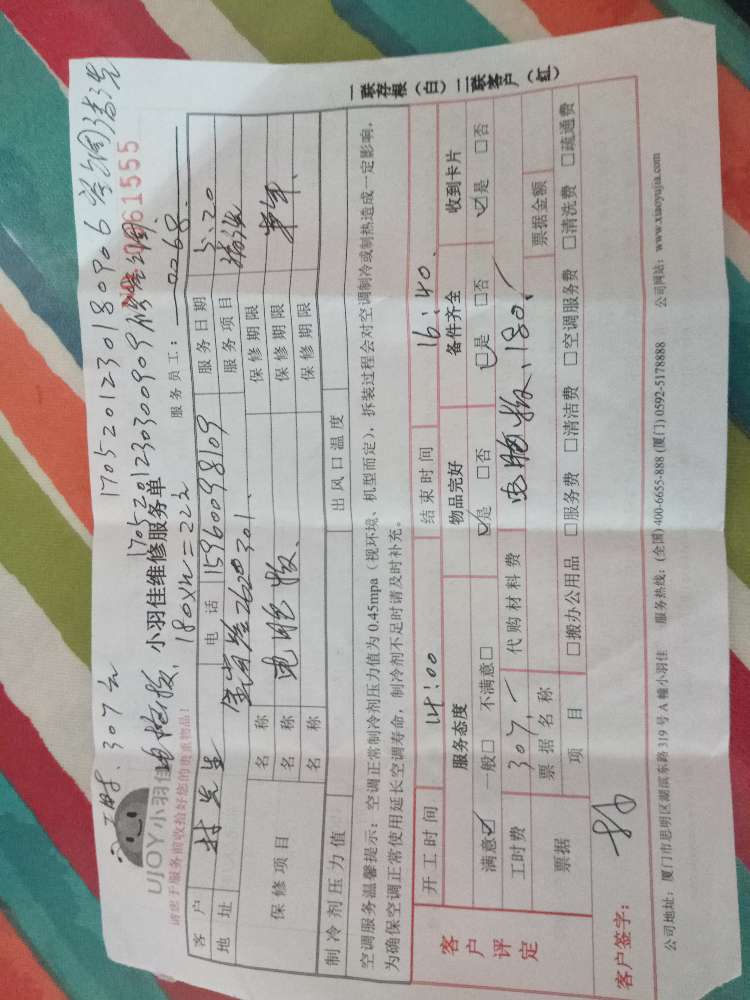 170520123018 0906
工时 307元
170520123030 0909
电脑板,
180X =222
No 0061555
UJOY小羽佳
小羽佳维修服务单
请您于服务前收拾好您的贵重物品!
服务员工: 0268
客户 林先生 电话 15960098109 服务日期 5.20
地址 2620 301 服务项目 维修
保修项目 名称 电脑板 保修期限 半年
名称 保修期限
名称 保修期限
制冷剂压力值 出风口温度
空调服务温馨提示:空调正常制冷剂压力值为 0.45mpa(视环境、机型而定),拆装过程会对空调制冷或制热造成一定影响,
为确保空调正常使用延长空调寿命,制冷剂不足时请及时补充。
客户评定
开工时间 14:00 结束时间 16:40
服务态度 物品完好 备件齐全 收到卡片
满意☑ 一般□ 不满意□ ☑是 □否 ☑是 □否 ☑是 □否
工时费 307.- 代购材料费 电脑板、180.
票据 票据名称 票据金额
项目 □搬办公用品 □服务费 □清洁费 □空调服务费 □清洗费 □疏通费
客户签字:
公司地址:厦门市思明区湖滨东路 319 号 A 幢小羽佳 服务热线:(全国) 400-6655-888 (厦门) 0592-5178888 公司网站:www.xiaoyujia.com
一联存根(白)二联客户(红)